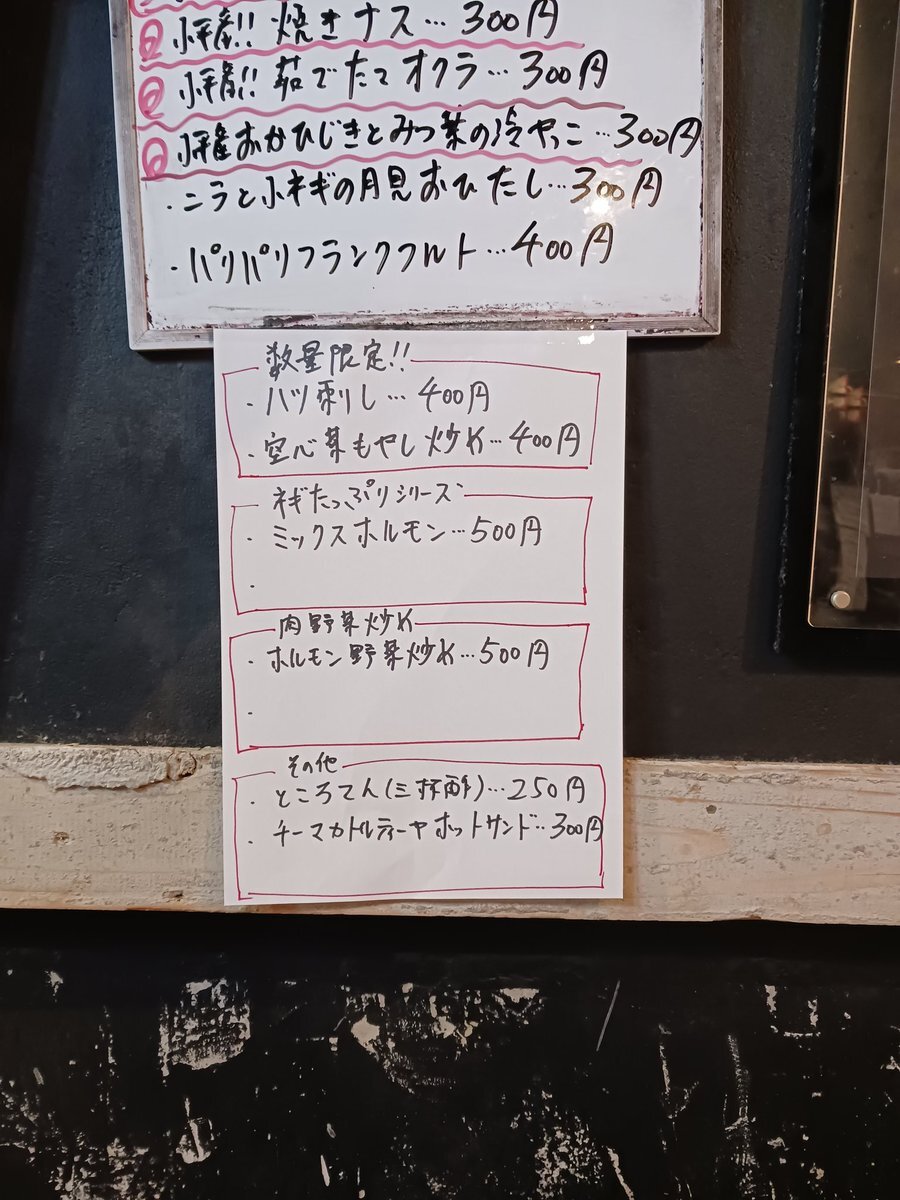 小平産!! 焼きナス…300円
小平産!! 茹でたてオクラ…300円
小平産おかひじきとみつ葉の冷やっこ…300円
・ニラと小ネギの月見おひたし…300円
・パリパリフランクフルト…400円
数量限定!!
・ハツ刺し…400円
・空心菜もやし炒め…400円
ネギたっぷりシリーズ
・ミックスホルモン…500円
・
肉野菜炒め
・ホルモン野菜炒め…500円
・
その他
・ところてん(三杯酢)…250円
・チーマカドルディーヤホットサンド…300円